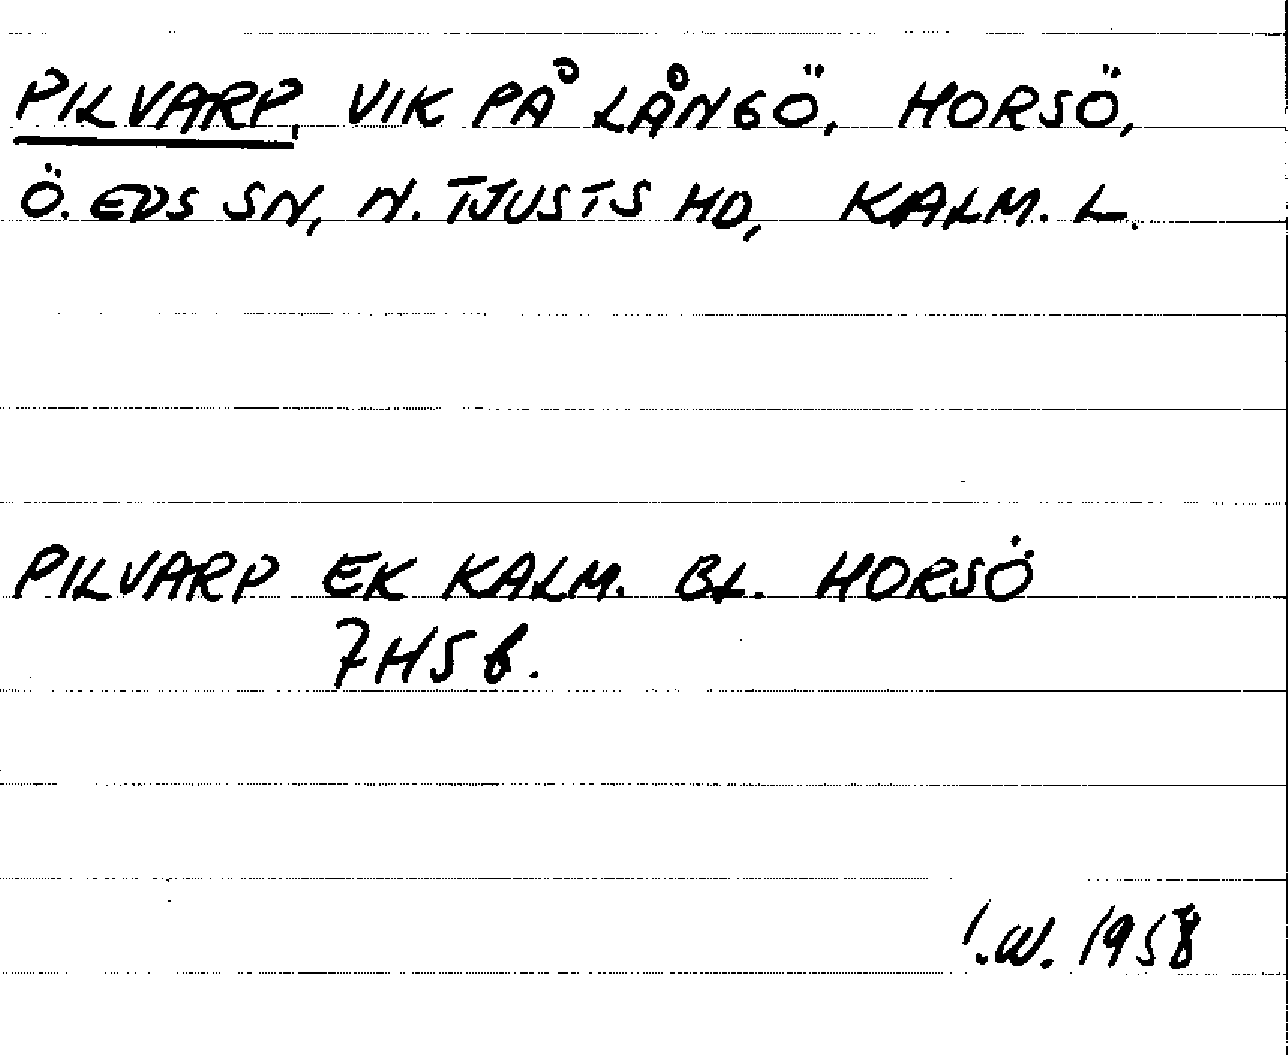 PILVARP, VIK PÅ LÅNGÖ, HORSÖ,
Ö. EDS SN, N. TJUSTS HD, KALM. L.
PILVARP EK KALM. BL. HORSÖ
7H5b.
I.W. 1958